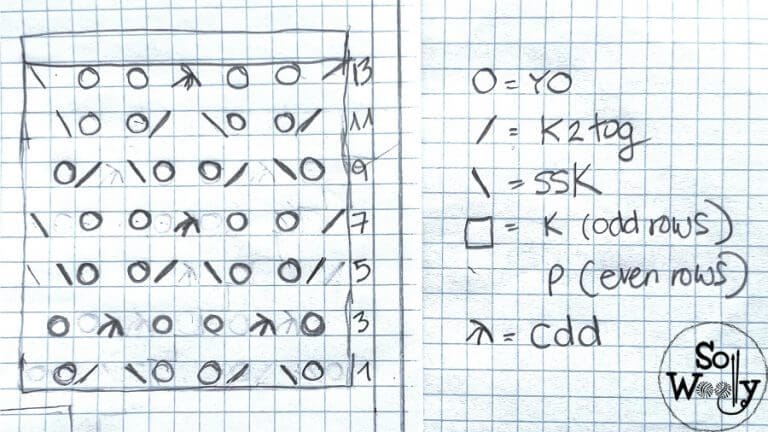 13
11
9
7
5
3
1
O = YO
/ = K2tog
\ = SSK
□ = K (odd rows)
P (even rows)
⅄ = cdd
So
Woolly